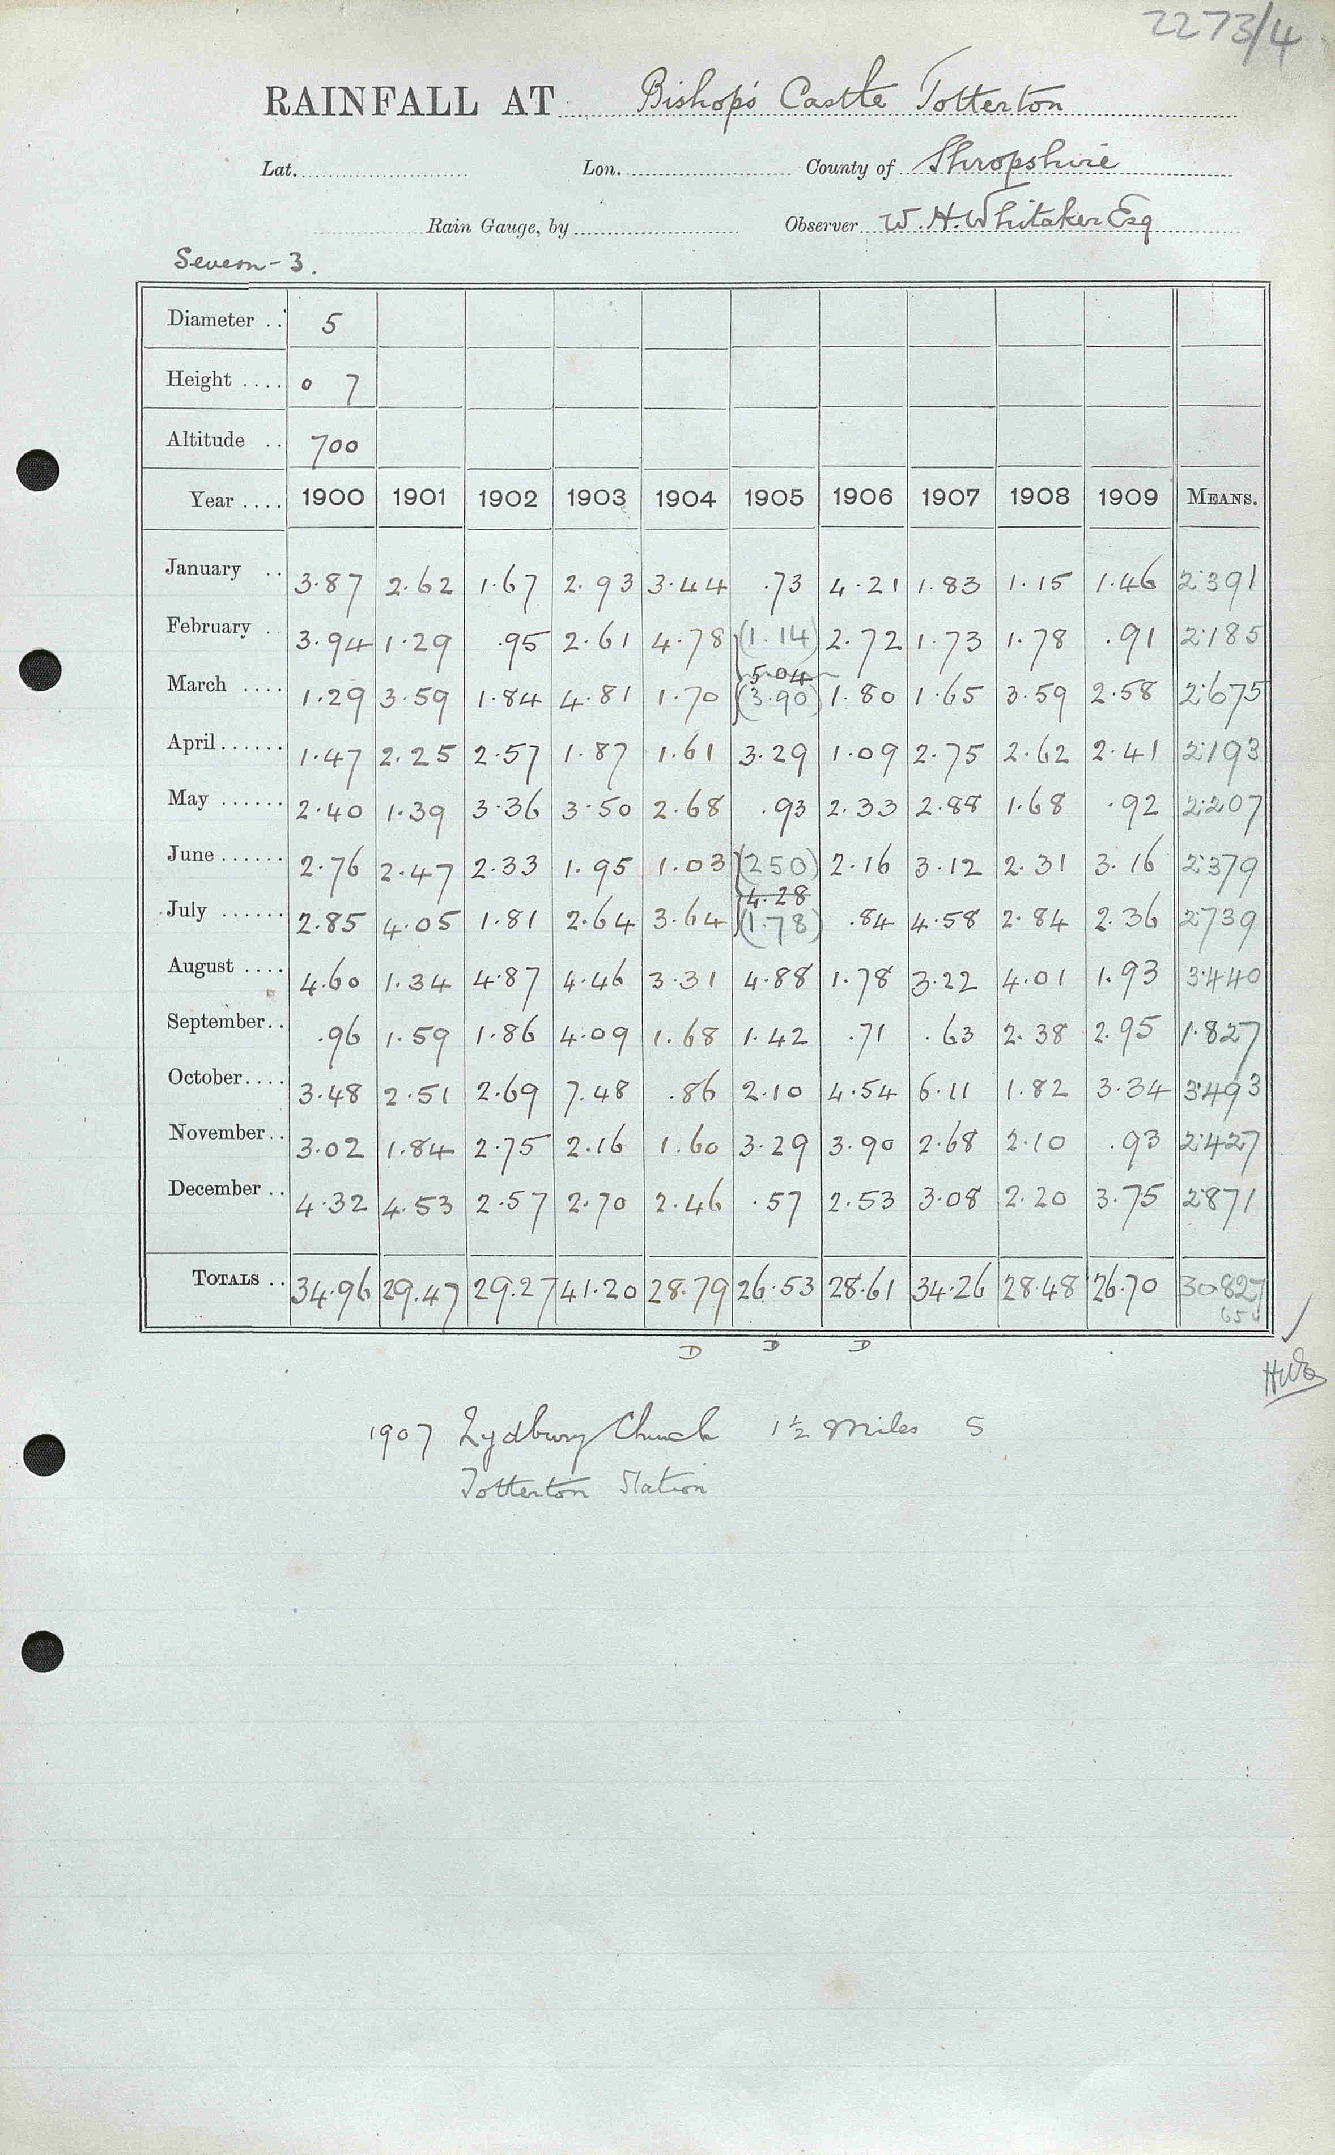 2273/4
RAINFALL AT Bishop's Castle Totterton
Lat. Lon. County of Shropshire
Rain Gauge, by Observer W. H. Whitaker Esq
Severn - 3.
Diameter .. 5
Height .... 0 7
Altitude .. 700
Year .... 1900 1901 1902 1903 1904 1905 1906 1907 1908 1909 MEANS.
January .. 3.87 2.62 1.67 2.93 3.44 .73 4.21 1.83 1.15 1.46 2.391
February . 3.94 1.29 .95 2.61 4.78 (1.14) 2.72 1.73 1.78 .91 2.185
5.04
March .... 1.29 3.59 1.84 4.81 1.70 (3.90) 1.80 1.65 3.59 2.58 2.675
April ...... 1.47 2.25 2.57 1.87 1.61 3.29 1.09 2.75 2.62 2.41 2.193
May ...... 2.40 1.39 3.36 3.50 2.68 .93 2.33 2.88 1.68 .92 2.207
June ...... 2.76 2.47 2.33 1.95 1.03 (2.50) 2.16 3.12 2.31 3.16 2.379
4.28
July ...... 2.85 4.05 1.81 2.64 3.64 (1.78) .84 4.58 2.84 2.36 2.739
August .... 4.60 1.34 4.87 4.46 3.31 4.88 1.78 3.22 4.01 1.93 3.440
September .. .96 1.59 1.86 4.09 1.68 1.42 .71 .63 2.38 2.95 1.827
October .... 3.48 2.51 2.69 7.48 .86 2.10 4.54 6.11 1.82 3.34 3.493
November .. 3.02 1.84 2.75 2.16 1.60 3.29 3.90 2.68 2.10 .93 2.427
December .. 4.32 4.53 2.57 2.70 2.46 .57 2.53 3.08 2.20 3.75 2.871
TOTALS .. 34.96 29.47 29.27 41.20 28.79 26.53 28.61 34.26 28.48 26.70 30.827
D D D
1907 Lydbury Church 1½ Miles S
Totterton Station